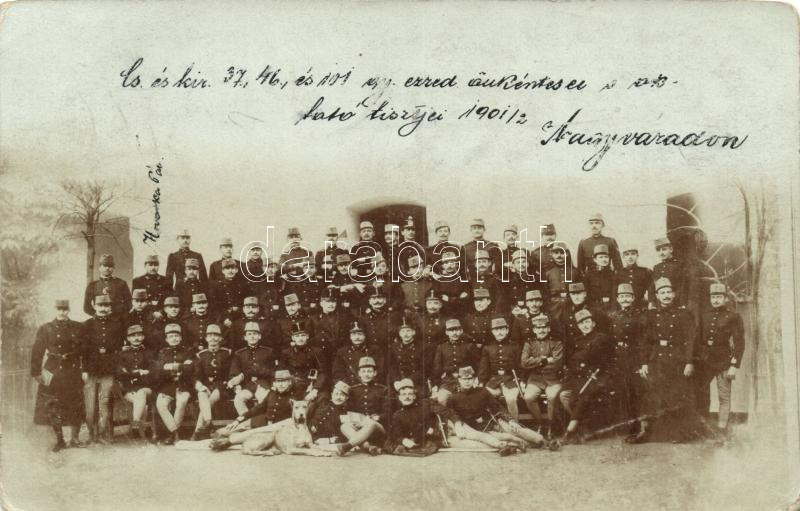 Cs. és kir. 37, 46, és 101 gy. ezred önkéntesei s ok-
tató tisztjei 1901/2
Nagyváradon
Hrvatka Pál
darabanth